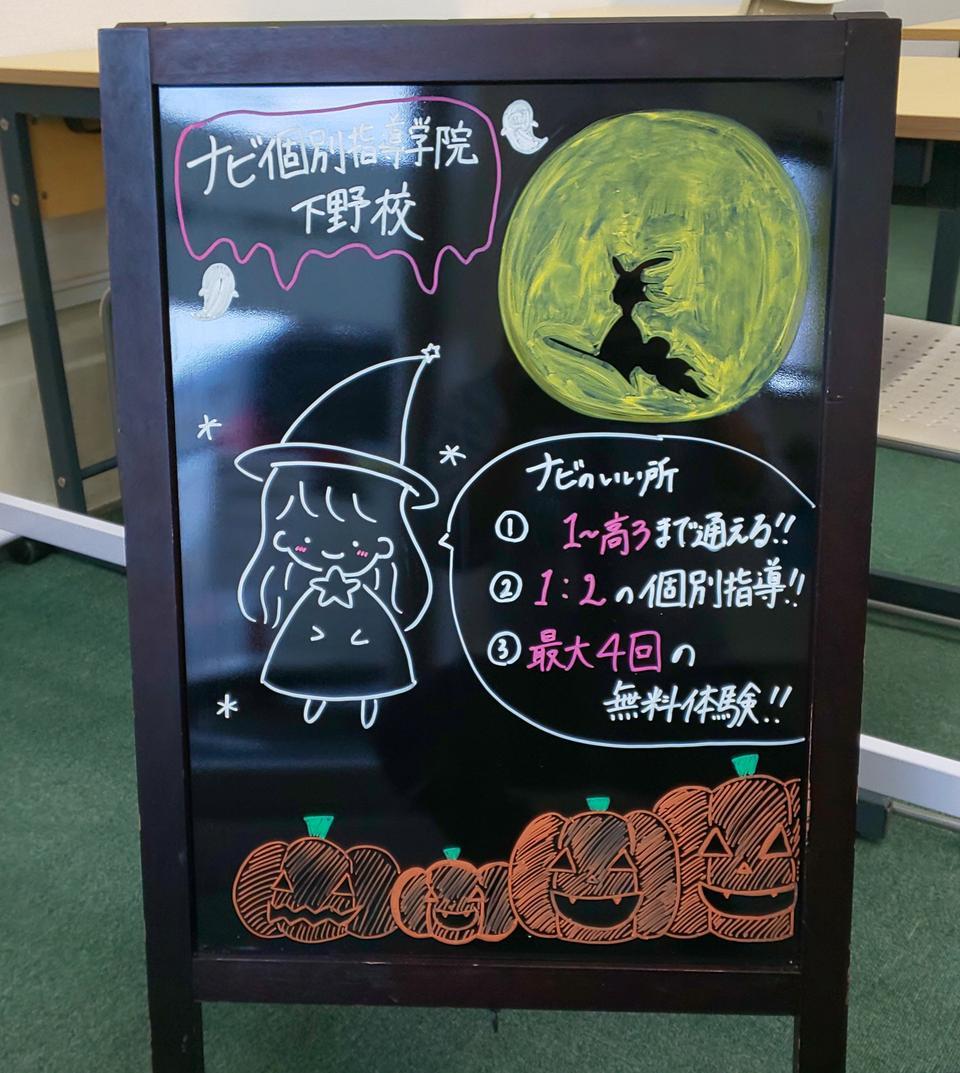 ナビ個別指導学院
下野校
ナビのいい所
① 1~高3まで通える!!
② 1:2の個別指導!!
③ 最大4回の
無料体験!!